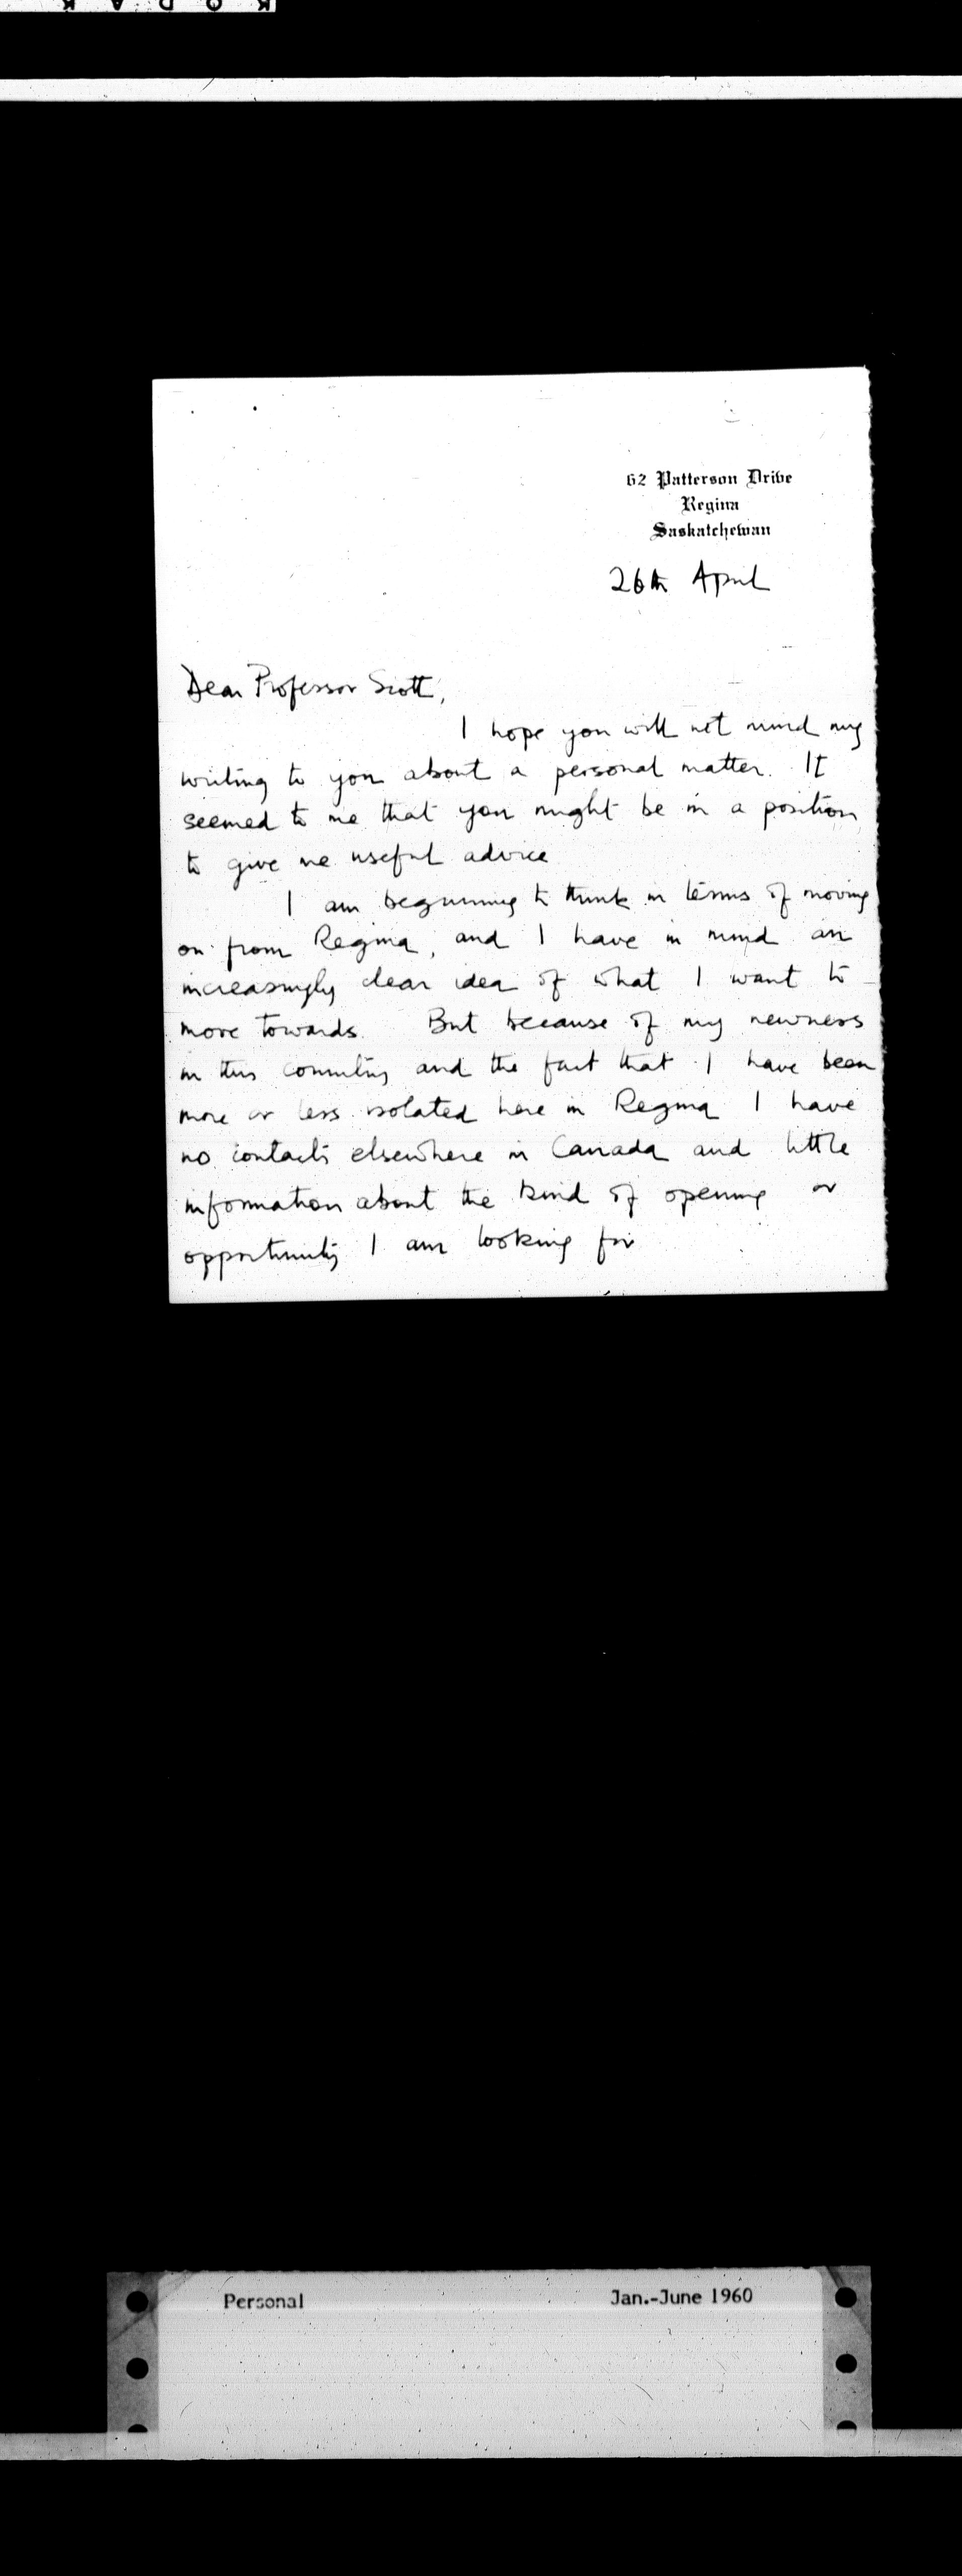 KODAK
62 Patterson Drive
Regina
Saskatchewan
26th April
Dear Professor Scott,
I hope you will not mind my
writing to you about a personal matter. It
seemed to me that you might be in a position
to give me useful advice
I am beginning to think in terms of moving
on from Regina, and I have in mind an
increasingly clear idea of what I want to
move towards. But because of my newness
in this country and the fact that I have been
more or less isolated here in Regina I have
no contacts elsewhere in Canada and little
information about the kind of opening or
opportunity I am looking for
Personal Jan.-June 1960